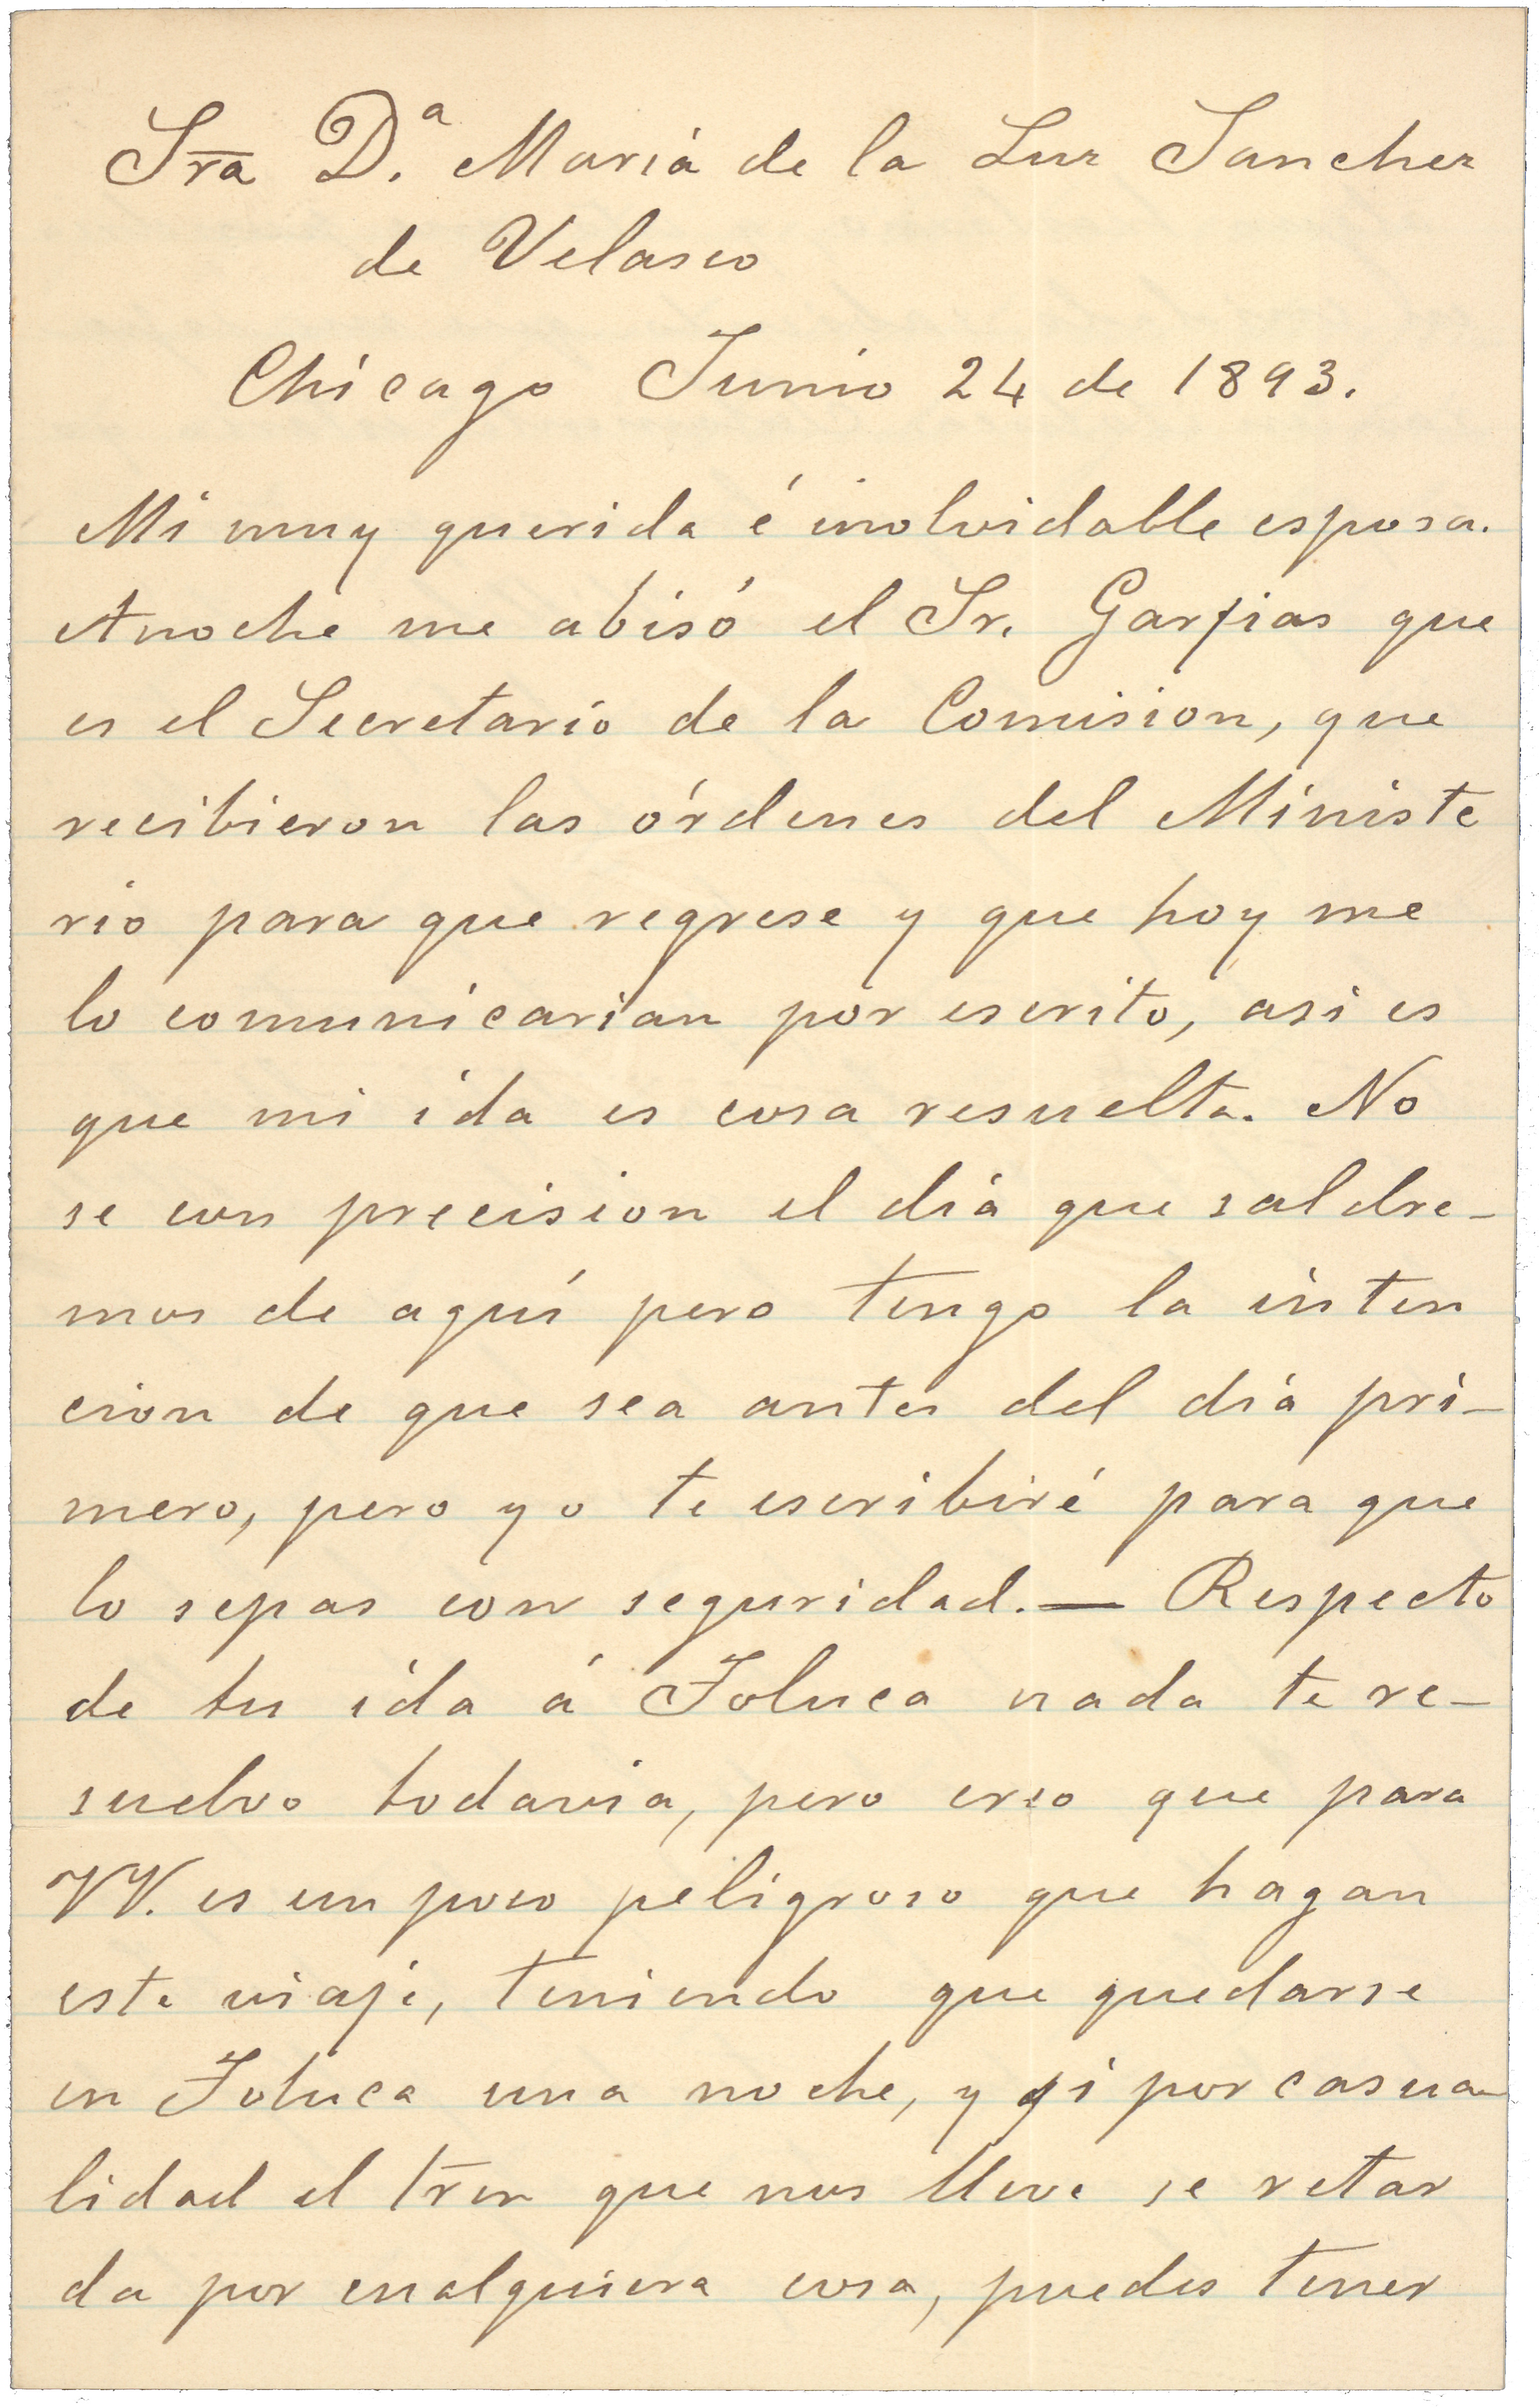 Sra D.ª Mariá de la Luz Sanchez
de Velasco
Chicago Junio 24 de 1893.
Mi muy querida é inolvidable esposa.
Anoche me abisó el Sr. Garfias que
es el Secretario de la Comision, que
recibieron las órdenes del Ministe
rio para que regrese y que hoy me
lo comunicarian por escrito, asi es
que mi ida es cosa resuelta. No
se con precision el diá que saldre-
mos de aquí pero tengo la inten
cion de que sea antes del diá pri-
mero, pero yo te escribiré para que
lo sepas con seguridad.— Respecto
de tu ida á Toluca nada te re-
suelvo todavia, pero creo que para
VV. es un poco peligroso que hagan
este viaje, teniendo que quedarse
en Toluca una noche, y si por casua
lidad el tren que nos lleve se retar
da por cualquiera cosa, puedes tener